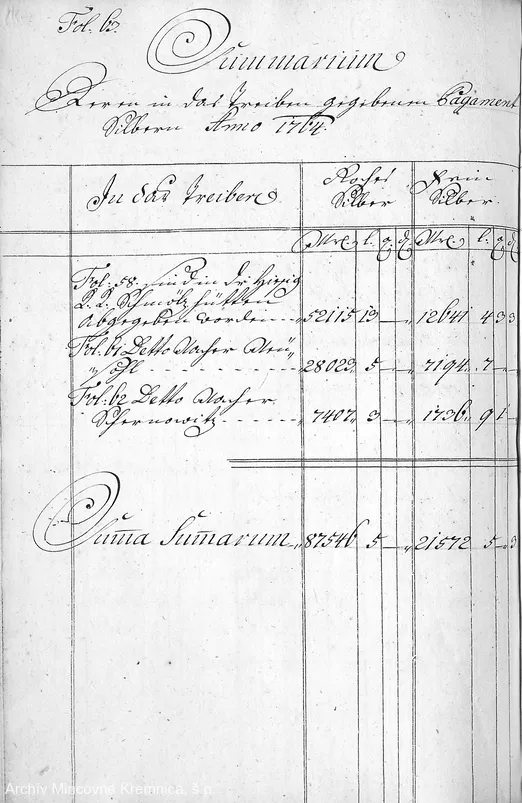 Fol. 63.
Summarium
Deren in das Treiben gegebenen Pagament
Silbern Anno 1764.
In das Treiben
Roches Silber
Fein Silber
Mrc. l. q. d. Mrc. l. q. d.
Fol. 58. sind in die Hiesig
K. K. Schmölz hütten
abgegeben worden 52115 13 — „ 12641 4 3 3
Fol. 61 Detto Nacher Neü
sohl 28023 5 — „ 7194 7 — „
Fol. 62 Detto Nacher
Schernowitz 7407 3 — „ 1736 9 1 —
Suma Sumarum 87546 5 — „ 21572 5 — 3
Archív Mincovne Kremnica, š.p.